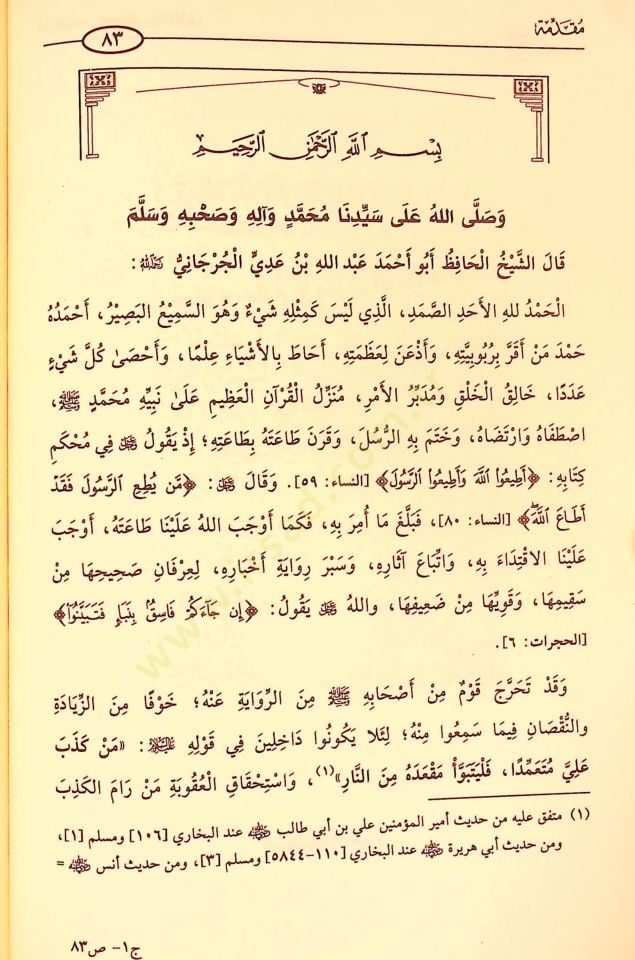 مُقَدِّمَة
٨٣
بِسْمِ اللَّهِ الرَّحْمَٰنِ الرَّحِيمِ
وَصَلَّى اللهُ عَلَى سَيِّدِنَا مُحَمَّدٍ وَآلِهِ وَصَحْبِهِ وَسَلَّمَ
قَالَ الشَّيْخُ الْحَافِظُ أَبُو أَحْمَدَ عَبْد اللهِ بْنُ عَدِيٍّ الْجُرْجَانِيُّ رَحِمَهُ اللهُ :
الْحَمْدُ للهِ الأَحَدِ الصَّمَدِ، الَّذِي لَيْسَ كَمِثْلِهِ شَيْءٌ وَهُوَ السَّمِيعُ البَصِيْرُ، أَحْمَدُهُ
حَمْدَ مَنْ أَقَرَّ بِرُبُوبِيَّتِهِ، وَأَذْعَنَ لِعَظَمَتِهِ، أَحَاطَ بِالأَشْيَاءِ عِلْمًا، وَأَحْصَىٰ كُلَّ شَيْءٍ
عَدَدًا، خَالِقُ الْخَلْقِ وَمُدَبِّرُ الأَمْرِ، مُنَزِّلُ الْقُرْآنِ الْعَظِيمِ عَلَىٰ نَبِيِّهِ مُحَمَّدٍ ﷺ،
اصْطَفَاهُ وَارْتَضَاهُ، وَخَتَمَ بِهِ الرُّسُلَ، وَقَرَنَ طَاعَتَهُ بِطَاعَتِهِ؛ إِذْ يَقُولُ ﷻ فِي مُحْكَمِ
كِتَابِهِ: ﴿أَطِيعُوا اللَّهَ وَأَطِيعُوا الرَّسُولَ﴾ [النساء: ٥٩]. وَقَالَ ﷻ: ﴿مَّن يُطِعِ الرَّسُولَ فَقَدْ
أَطَاعَ اللَّهَ ۖ﴾ [النساء: ٨٠]، فَبَلَّغَ مَا أُمِرَ بِهِ، فَكَمَا أَوْجَبَ اللهُ عَلَيْنَا طَاعَتَهُ، أَوْجَبَ
عَلَيْنَا الاقْتِدَاءَ بِهِ، وَاتِّبَاعَ آثَارِهِ، وَسَبْرَ رِوَايَةِ أَخْبَارِهِ، لِعِرْفَانِ صَحِيحِهَا مِنْ
سَقِيمِهَا، وَقَوِيِّهَا مِنْ ضَعِيفِهَا، واللهُ ﷻ يَقُولُ: ﴿إِن جَاءَكُمْ فَاسِقٌ بِنَبَإٍ فَتَبَيَّنُوا﴾
[الحجرات: ٦].
وَقَدْ تَحَرَّجَ قَوْمٌ مِنْ أَصْحَابِهِ ﷺ مِنَ الرِّوَايَةِ عَنْهُ؛ خَوْفًا مِنَ الزِّيَادَةِ
والنُّقْصَانِ فِيمَا سَمِعُوا مِنْهُ؛ لِئَلا يَكُونُوا دَاخِلِينَ فِي قَوْلِهِ ﷺ: «مَنْ كَذَبَ
عَلَيَّ مُتَعَمِّدًا، فَلْيَتَبَوَّأْ مَقْعَدَهُ مِنَ النَّارِ»(١)، وَاسْتِحْقَاقِ الْعُقُوبَةِ مَنْ رَامَ الكَذِبَ
(١) متفق عليه من حديث أمير المؤمنين علي بن أبي طالب رضي الله عنه عند البخاري [١٠٦] ومسلم [١]،
ومن حديث أبي هريرة رضي الله عنه عند البخاري [١١٠-٥٨٤٤] ومسلم [٣]، ومن حديث أنس رضي الله عنه =
ج١- ص٨٣